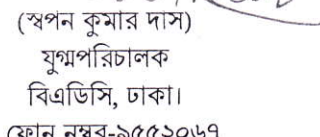 (স্বপন কুমার দাস)
যুগ্মপরিচালক
বিএডিসি, ঢাকা।
ফোন নম্বর-৯৫৫২০৬৭